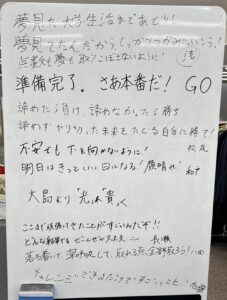 夢見た大学生活まであと少し!
夢見てたんだから、しっかりつかみにいこう!
点数も夢も取りこぼさないように!
準備完了。さあ本番だ! GO
諦めたら負け 諦めなかったら勝ち
諦めずやり切った未来をたどる自分に勝て!
不安でも下を向かないように! 松尾
明日はきっといい日になる! 頑晴れ!
大島より「光」貴く
ここまで頑張ってきたことがすごいんだぞ!!
どんな結果でもぜーんぜん大丈夫ー
落ち着いて、深呼吸して、取れる点全部取ろう! 八田
チャレンジしていることがすごいこと